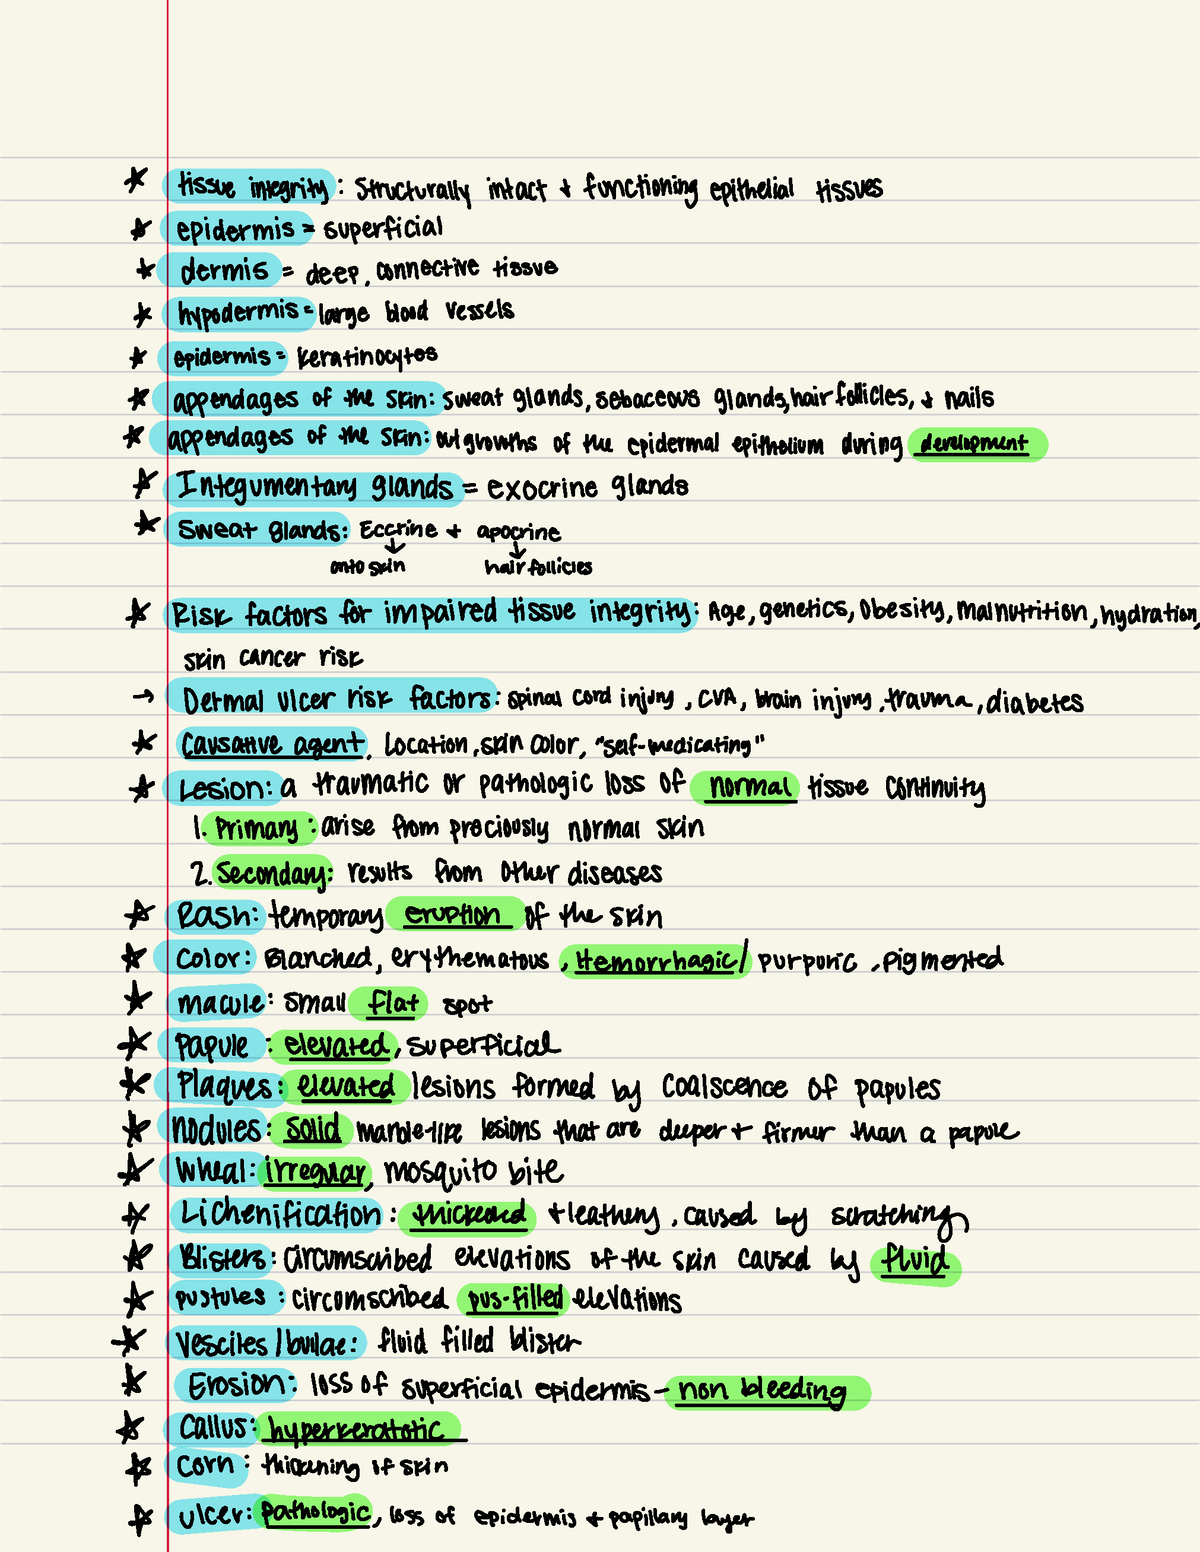 ★ tissue integrity: structurally intact + functioning epithelial tissues
★ epidermis = superficial
★ dermis = deep, connective tissue
★ hypodermis = large blood vessels
★ epidermis = keratinocytes
★ appendages of the skin: sweat glands, sebaceous glands, hair follicles, + nails
★ appendages of the skin: outgrowths of the epidermal epithelium during development
★ Integumentary glands = exocrine glands
★ Sweat glands: Eccrine + apocrine
↓ ↓
onto skin hair follicies
★ Risk factors for impaired tissue integrity: Age, genetics, Obesity, malnutrition, hydration,
skin cancer risk
→ Dermal ulcer risk factors: spinal cord injury, CVA, brain injury, trauma, diabetes
★ Causative agent, Location, skin color, "self-medicating"
★ Lesion: a traumatic or pathologic loss of normal tissue continuity
1. Primary: arise from preciously normal skin
2. Secondary: results from other diseases
★ Rash: temporary eruption of the skin
★ Color: Blanched, erythematous, Hemorrhagic/ purpuric, pigmented
★ macule: small flat spot
★ Papule: elevated, superficial
★ Plaques: elevated lesions formed by coalscence of papules
★ nodules: solid marble-like lesions that are deeper + firmer than a papule
★ Wheal: irreguar, mosquito bite
★ Lichenification: thickened + leathery, caused by scratching
★ Blisters: circumscribed elevations of the skin caused by fluid
★ pustules: circomscribed pus-filled elevations
★ Vesciles/bullae: fluid filled blister
★ Erosion: loss of superficial epidermis - non bleeding
★ Callus: hyperkeratotic
★ Corn: thickening of skin
★ ulcer: pathologic, loss of epidermis + papillary layer